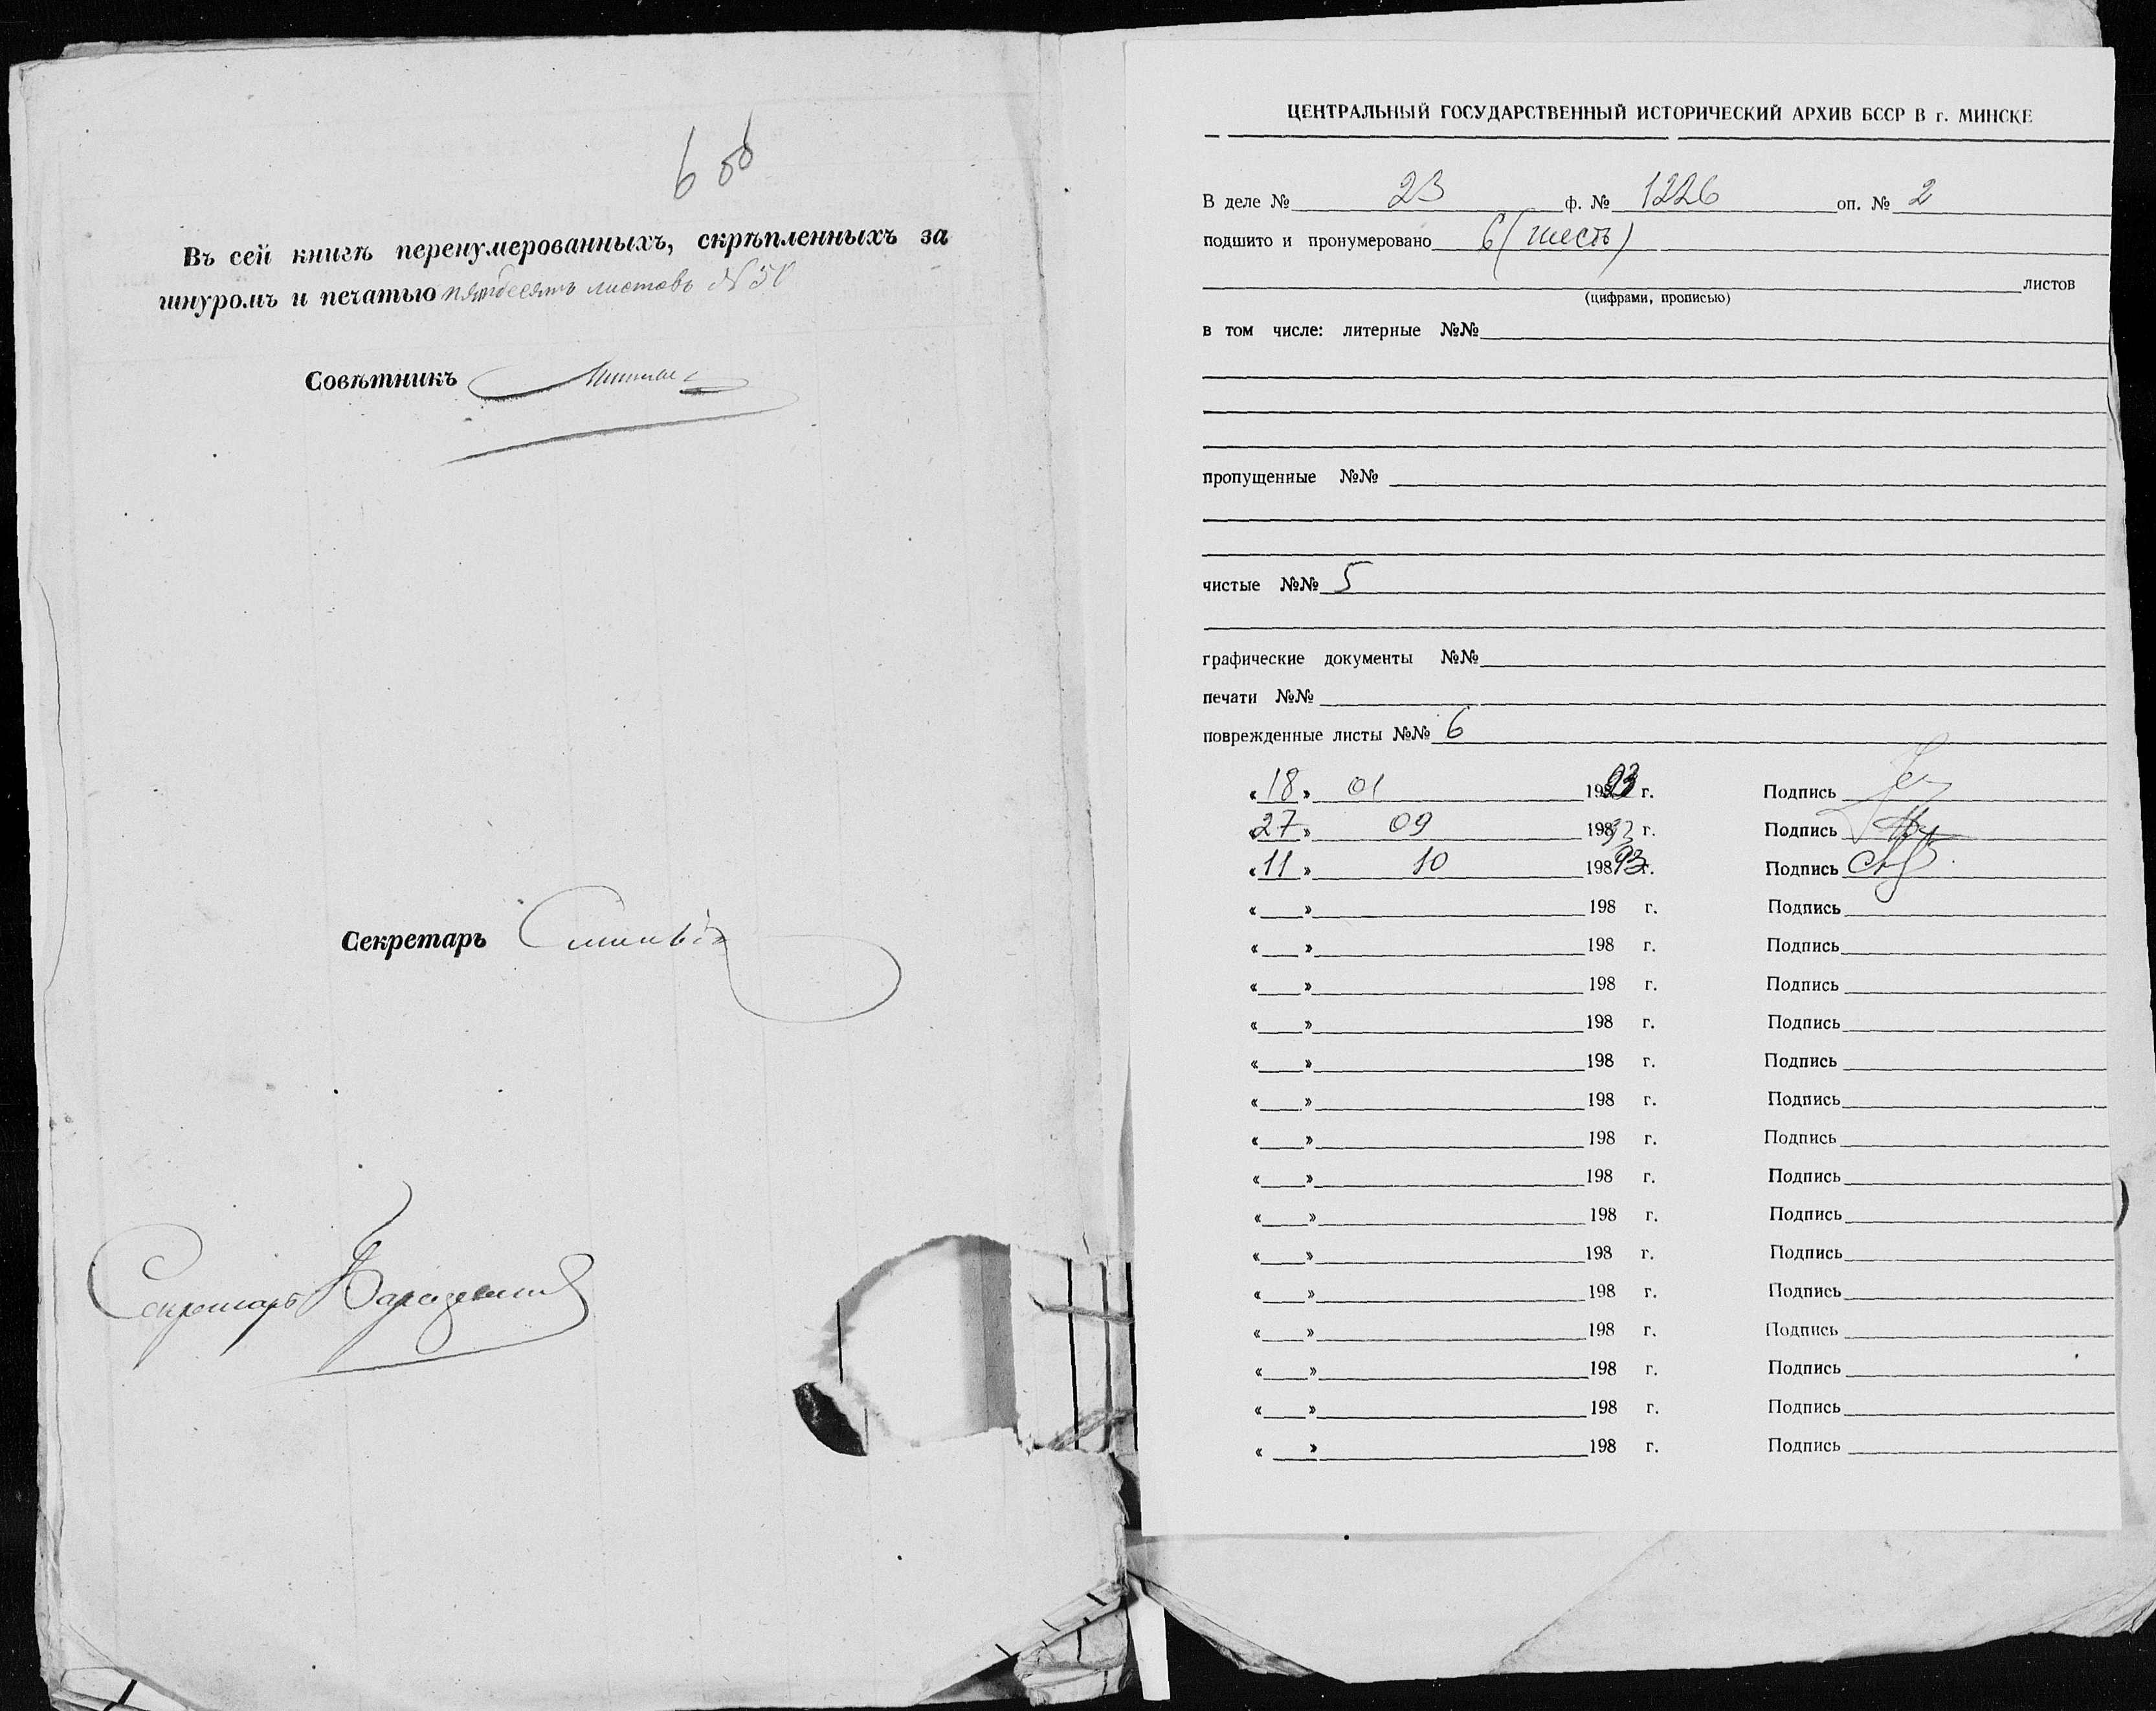 6 об
Въ сей книгѣ перенумерованныхъ, скрѣпленныхъ за
шнуромъ и печатью пятдесятъ листовъ №50
Совѣтникъ
Секретарь
Секретарь
ЦЕНТРАЛЬНЫЙ ГОСУДАРСТВЕННЫЙ ИСТОРИЧЕСКИЙ АРХИВ БССР В г. МИНСКЕ
В деле № 23 ф. № 1226 оп. № 2
подшито и пронумеровано 6 (шесть)
листов
(цифрами, прописью)
в том числе: литерные №№
пропущенные №№
чистые №№ 5
графические документы №№
печати №№
поврежденные листы №№ 6
«18» 01 1993 г. Подпись
«27» 09 19893 г. Подпись
«11» 10 19893 г. Подпись
« » 198 г. Подпись
« » 198 г. Подпись
« » 198 г. Подпись
« » 198 г. Подпись
« » 198 г. Подпись
« » 198 г. Подпись
« » 198 г. Подпись
« » 198 г. Подпись
« » 198 г. Подпись
« » 198 г. Подпись
« » 198 г. Подпись
« » 198 г. Подпись
« » 198 г. Подпись
« » 198 г. Подпись
« » 198 г. Подпись